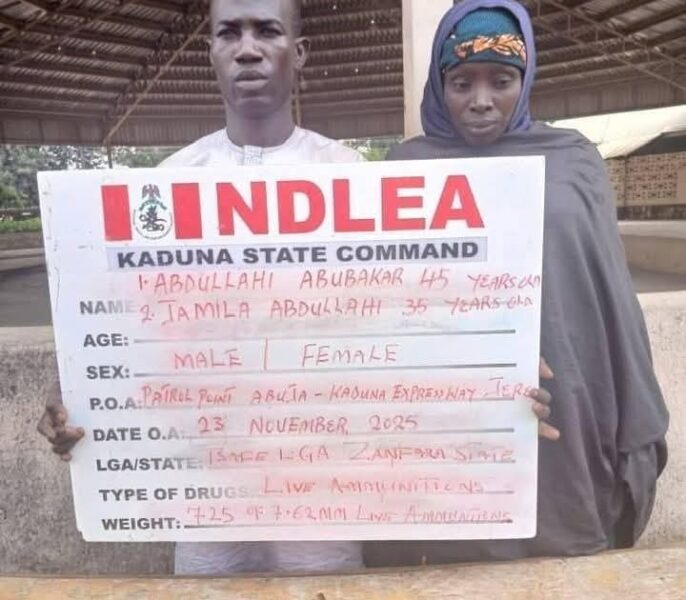 NDLEA
KADUNA STATE COMMAND
NAME: 1. ABDULLAHI ABUBAKAR 45 YEARS OLD
2. JAMILA ABDULLAHI 35 YEARS OLD
AGE:
SEX: MALE / FEMALE
P.O.A: PATROL POINT ABUJA - KADUNA EXPRESSWAY, JERE
DATE O.A: 23 NOVEMBER 2025
LGA/STATE: LGA ZANFARA STATE
TYPE OF DRUGS LIVE AMMUNITIONS
WEIGHT: 725 OF 7.62MM LIVE AMMUNITIONS